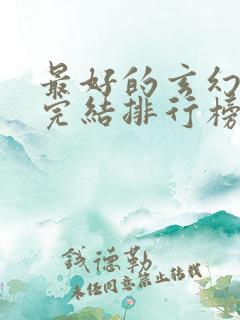 最好的玄幻
完結排行榜
錢德勒
未经同意禁止转载